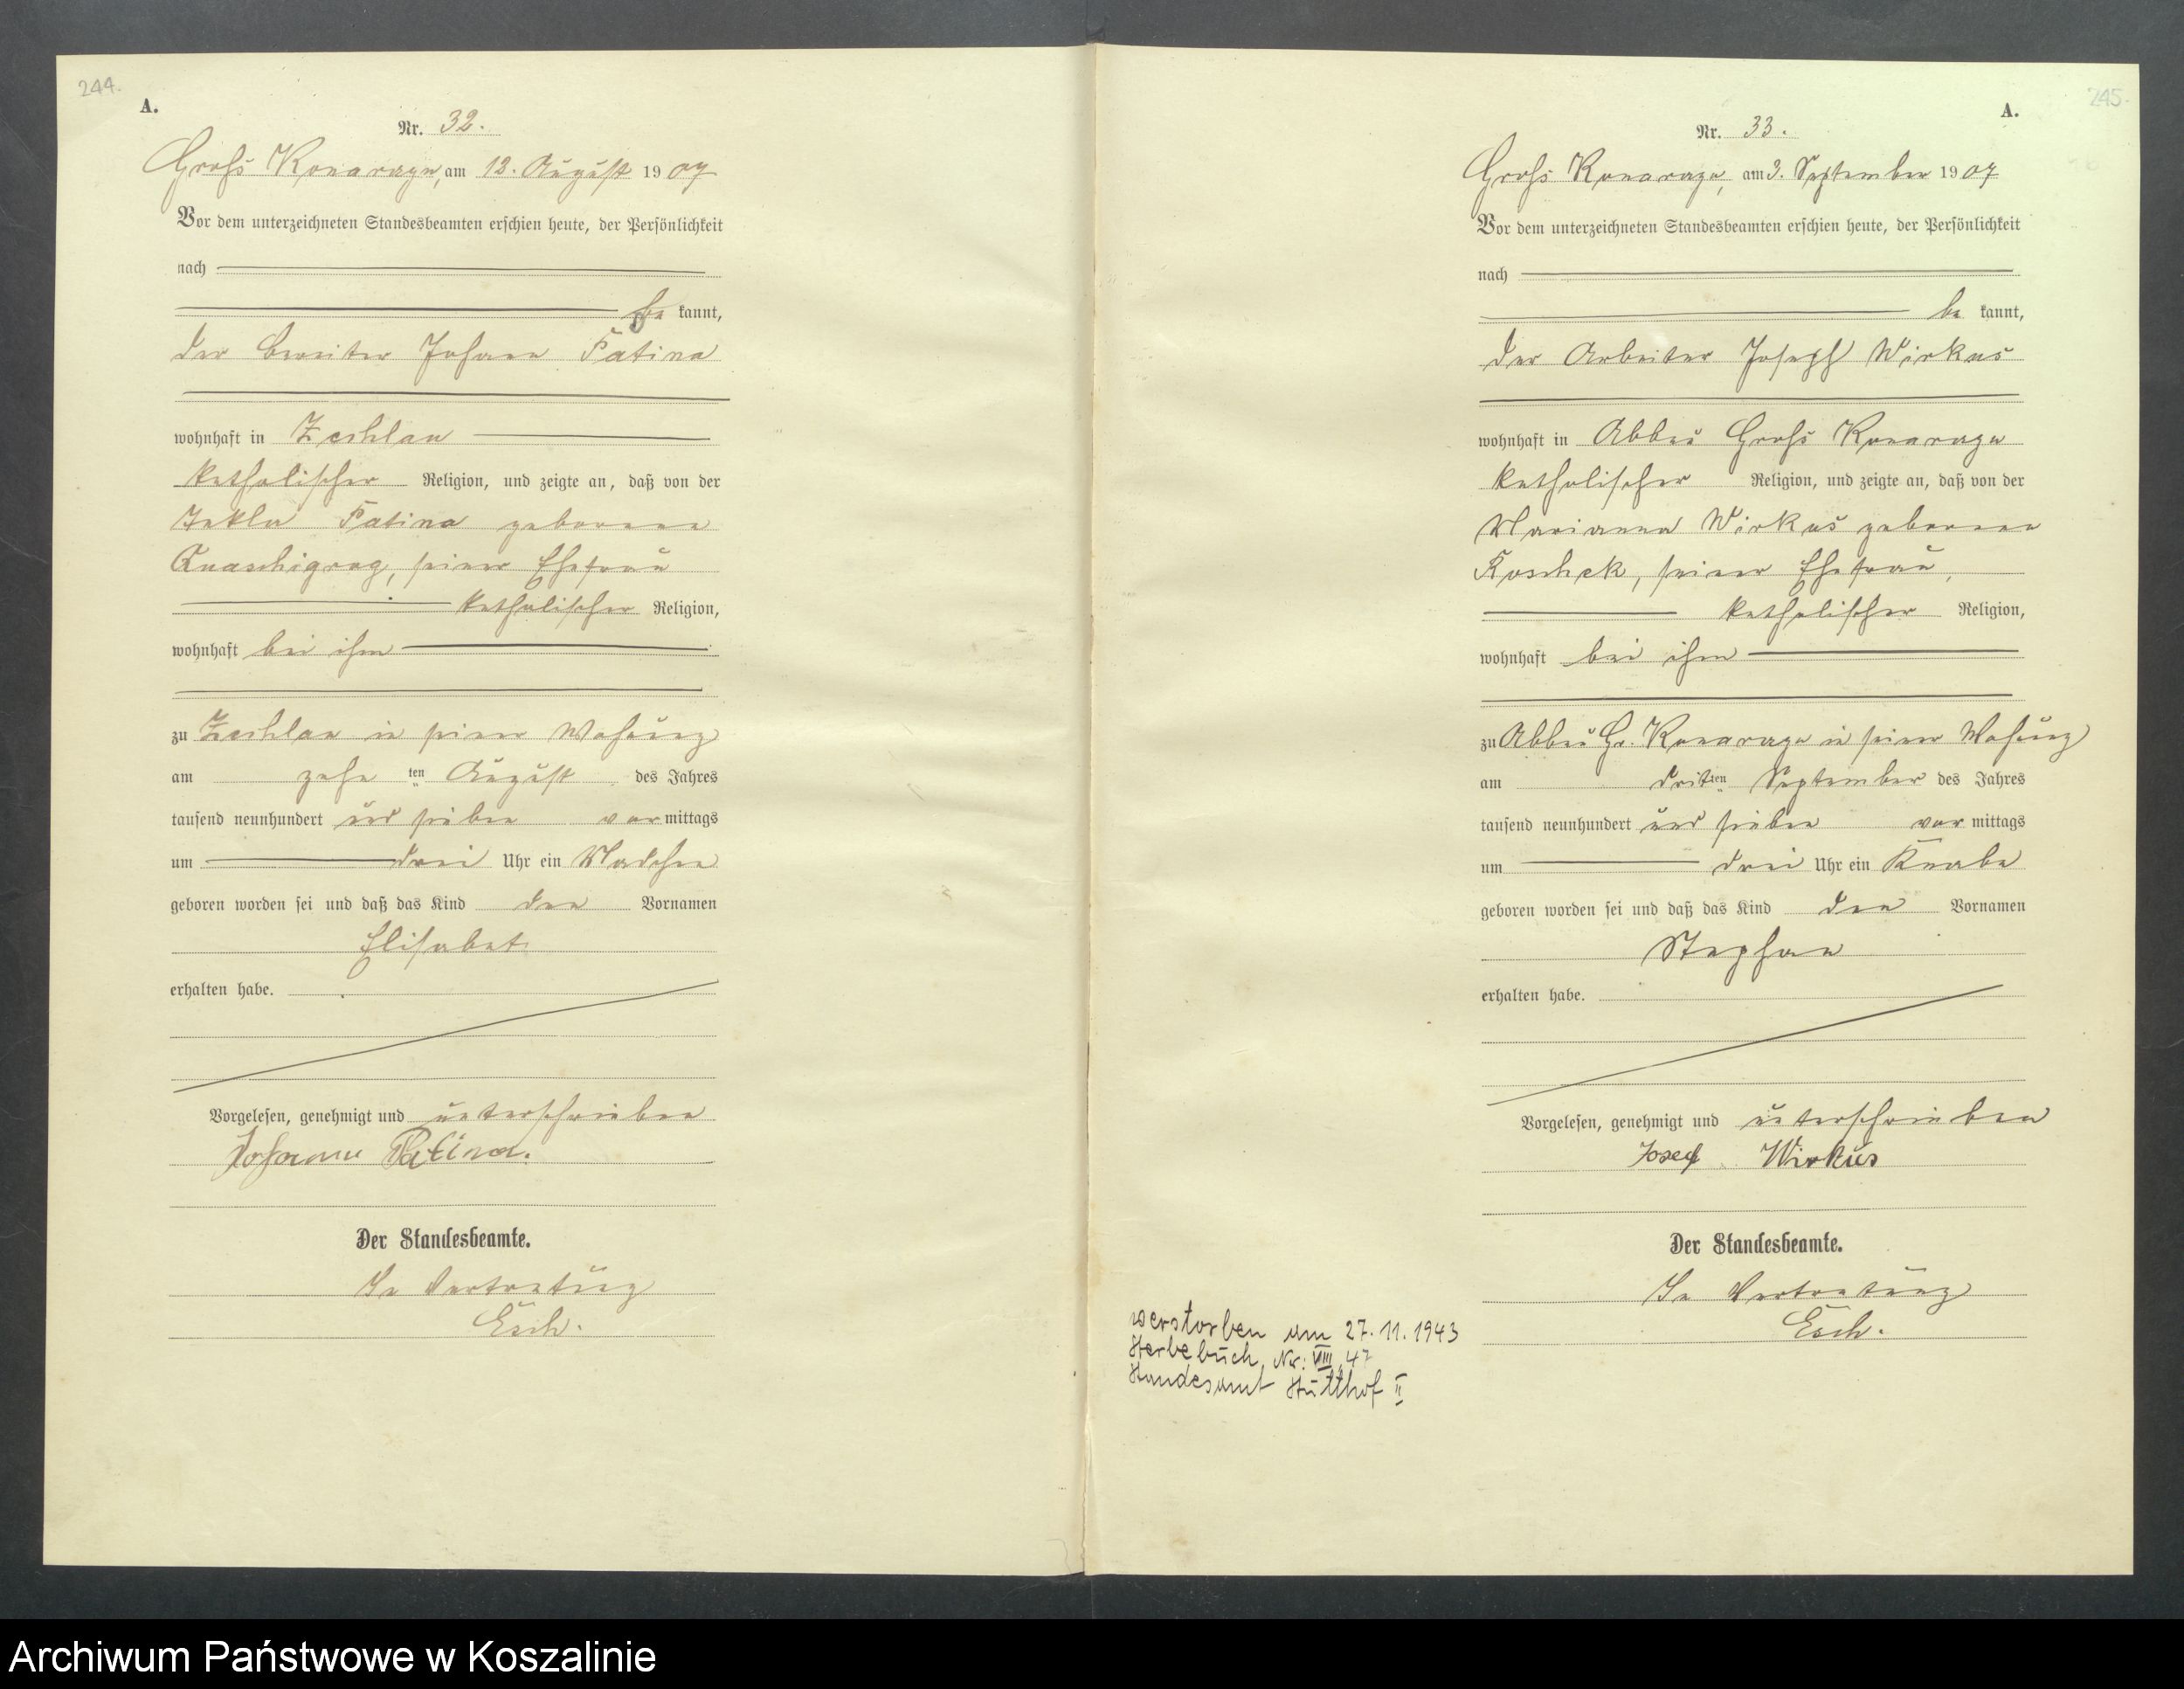 244.
A.
Nr. 32.
Gross Konarczyn, am 12. August 1907
Vor dem unterzeichneten Standesbeamten erschien heute, der Persönlichkeit
nach
be kannt,
der Johann Patina
wohnhaft in Zechlau
katholischer Religion, und zeigte an, daß von der
Tekla Patina geborene
seiner Ehefrau
katholischer Religion,
wohnhaft bei ihm
zu Zechlau in seiner Wohnung
am zehn ten August des Jahres
tausend neunhundert und sieben vormittags
um drei Uhr ein Madchen
geboren worden sei und daß das Kind den Vornamen
Elisabet
erhalten habe.
Vorgelesen, genehmigt und unterschrieben
Johann Patina.
Der Standesbeamte.
In Vertretung
Esch.
245.
A.
Nr. 33.
Gross Konarczyn, am 3. September 1907
Vor dem unterzeichneten Standesbeamten erschien heute, der Persönlichkeit
nach
be kannt,
der Arbeiter Joseph Wirkus
wohnhaft in Abbau Gross Konarczyn
katholischer Religion, und zeigte an, daß von der
Marianna Wirkus geborene
seiner Ehefrau,
katholischer Religion,
wohnhaft bei ihm
zu Abbau Gr. Konarczyn in seiner Wohnung
am dritten September des Jahres
tausend neunhundert und sieben vor mittags
um drei Uhr ein Knabe
geboren worden sei und daß das Kind den Vornamen
Stephan
erhalten habe.
Vorgelesen, genehmigt und unterschrieben
Josef Wirkus
Der Standesbeamte.
In Vertretung
Esch.
verstorben am 27.11.1943
Sterbebuch, Nr: VIII, 47
Standesamt Stutthof II
Archiwum Państwowe w Koszalinie